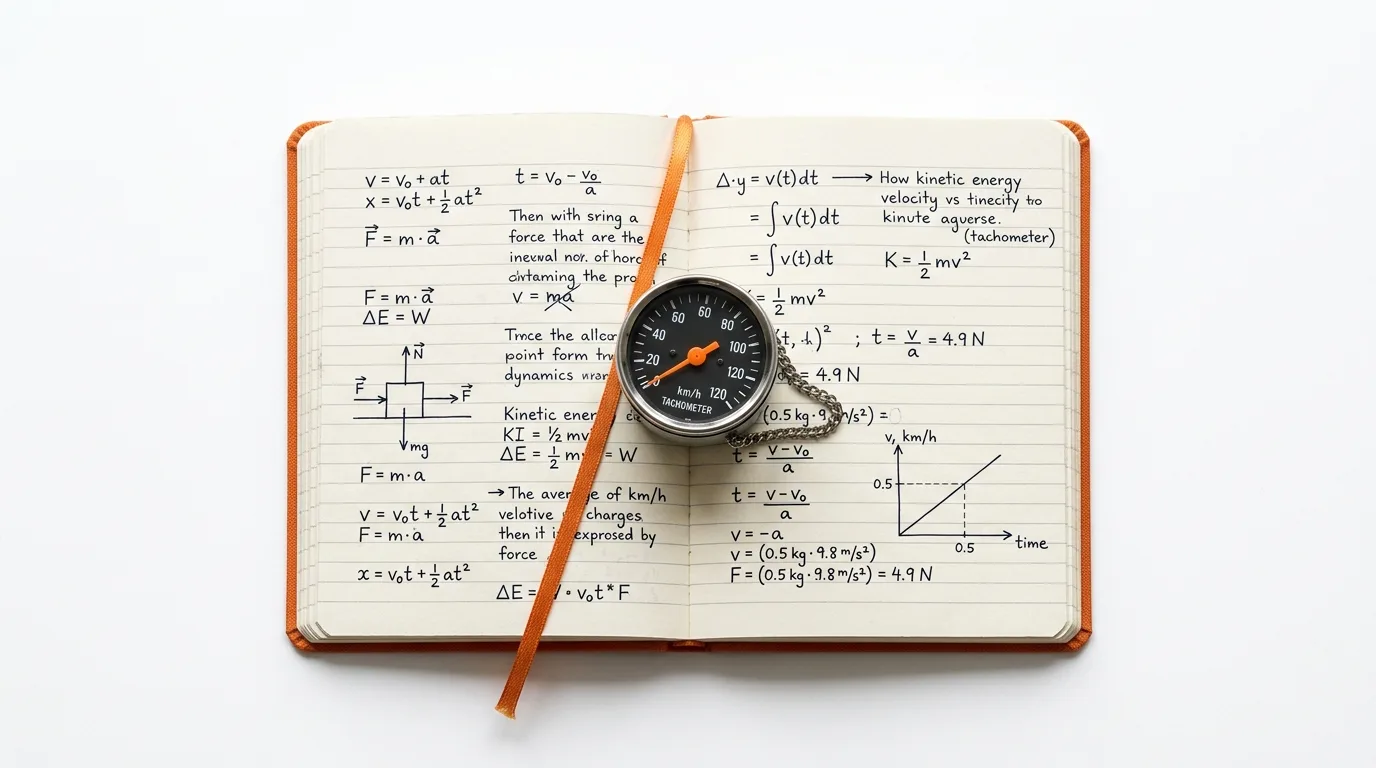 v = v₀ + at
x = v₀t + ½ at²
F⃗ = m · a⃗
F = m · a⃗
ΔE = W
N⃗
F⃗
F⃗
mg
F = m · a
v = v₀t + ½ at²
F = m · a
x = v₀t + ½ at²
t = v₀ − v₀/a
Then with sring a
force that are the
of
the
v = ma
the
point form
dynamics
Kinetic
KI = ½ mv
ΔE = ½ m = W
→ The average of km/h
velotive charges
then it exprosed by
force
ΔE = · v₀t * F
Δ·y = v(t) dt ⟶ How kinetic energy
velocity vs tinecity to
= ∫ v(t) dt kinute aguerse.
(tachometer)
= ∫ v(t) dt K = ½ mv²
= ½ mv²
; t = v/a = 4.9 N
= 4.9 N
(0.5 kg · 9. m/s²) =
t = v − v₀/a
t = v − v₀/a
v = −a
v = (0.5 kg · 9.8 m/s²)
F = (0.5 kg · 9.8 m/s²) = 4.9 N
v, km/h
0.5
0.5
time
0
20
40
50
60
80
100
120
120
km/h
TACHOMETER